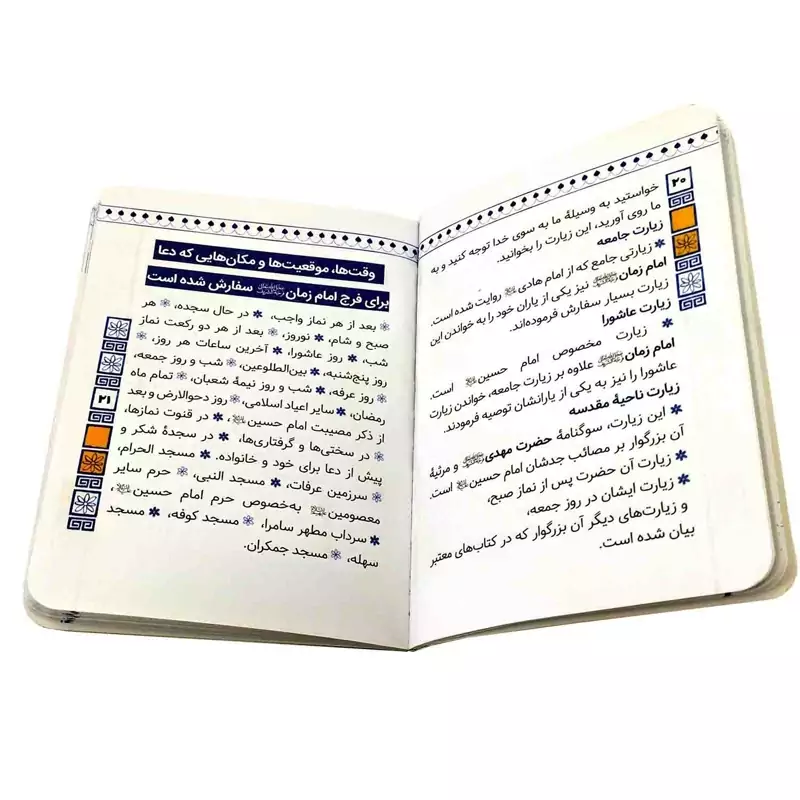 ۲۰
خواستید به وسیلهٔ ما به سوی خدا توجه کنید و به
ما روی آورید، این زیارت را بخوانید.
زیارت جامعه
✱ زیارتی جامع که از امام هادی روایت شده است.
امام زمان نیز یکی از یاران خود را به خواندن این
زیارت بسیار سفارش فرموده‌اند.
زیارت عاشورا
✱ زیارت مخصوص امام حسین است.
امام زمان علاوه بر زیارت جامعه، خواندن زیارت
عاشورا را نیز به یکی از یارانشان توصیه فرمودند.
زیارت ناحیهٔ مقدسه
✱ این زیارت، سوگنامهٔ حضرت مهدی و مرثیهٔ
آن بزرگوار بر مصائب جدشان امام حسین است.
✱ زیارت آن حضرت پس از نماز صبح،
✱ زیارت ایشان در روز جمعه،
و زیارت‌های دیگر آن بزرگوار که در کتاب‌های معتبر
بیان شده است.
وقت‌ها، موقعیت‌ها و مکان‌هایی که دعا
برای فرج امام زمان سفارش شده است
❀ بعد از هر نماز واجب، ✱ در حال سجده، ❀ هر
صبح و شام، ✱ نوروز، ❀ بعد از هر دو رکعت نماز
شب، ✱ روز عاشورا، ❀ آخرین ساعات هر روز، ✱
روز پنج‌شنبه، ❀ بین‌الطلوعین، ✱ شب و روز جمعه،
❀ روز عرفه، ✱ شب و روز نیمهٔ شعبان، ❀ تمام ماه
رمضان، ✱ سایر اعیاد اسلامی، ❀ روز دحوالارض و بعد
از ذکر مصیبت امام حسین، ✱ در قنوت نمازها،
❀ در سختی‌ها و گرفتاری‌ها، ✱ در سجدهٔ شکر و
پیش از دعا برای خود و خانواده. ❀ مسجد الحرام،
✱ سرزمین عرفات، ❀ مسجد النبی، ✱ حرم سایر
معصومین به‌خصوص حرم امام حسین،
✱ سرداب مطهر سامرا، ❀ مسجد کوفه، ✱ مسجد
سهله، ❀ مسجد جمکران.
۲۱